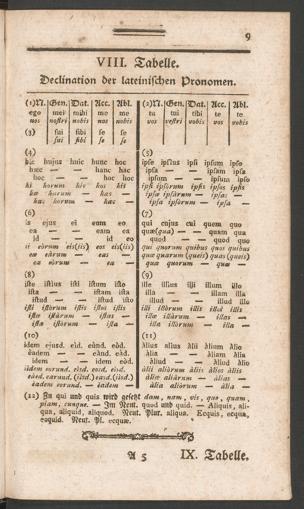 9
VIII. Tabelle.
Declination der lateinischen Pronomen.
(1) N. Gen. Dat. Acc. Abl.
ego mei mihi me me
nos nostri nobis nos nobis
(3) sui sibi se se
sui sibi se se
(2) N. Gen. Dat. Acc. Abl.
tu tui tibi te te
vos vestri vobis vos vobis
(4)
hic hujus huic hunc hoc
hæc — — hanc hac
hoc — — hoc hoc
hi horum his hos his
hæ harum — has —
hæc horum — hæc —
(5)
ipse ipsius ipsi ipsum ipso
ipsa — — ipsam ipsa
ipsum — — ipsum ipso
ipsi ipsorum ipsis ipsos ipsis
ipsæ ipsarum — ipsas —
ipsa ipsorum — ipsa —
(6)
is ejus ei eum eo
ea — — eam ea
id — — id eo
ii eorum eis(iis) eos eis(iis)
eæ earum — eas —
ea eorum — ea —
(7)
qui cujus cui quem quo
quæ(qua) — — quam qua
quod — — quod quo
qui quorum quibus quos quibus
quæ quarum (queis) quas (queis)
quæ quorum — quæ —
(8)
iste istius isti istum isto
ista — — istam ista
istud — — istud isto
isti istorum istis istos istis
istæ istarum — istas —
ista istorum — ista —
(9)
ille illius illi illum illo
illa — — illam illa
illud — — illud illo
illi illorum illis illos illis
illæ illarum — illas —
illa illorum — illa —
(10)
idem ejusd. eid. eùnd. eòd.
èadem — — eànd. eàd.
idem — — idem eòd.
iidem eorund. eisd. eosd. eisd.
eæd. earund. (iisd.) easd. (iisd.)
èadem eorund. — èadem
(11)
àlius alìus àlii àlium àlio
àlia — — àliam àlia
àliud — — àliud àlio
àlii aliòrum àliis àlios àliis
àliæ aliàrum — àlias —
àlia aliòrum — àlia —
(12) In qui und quis wird gesetzt dam, nam, vis, que, quam,
piam, cunque. — Im Neut. quod und quid. — Aliquis, ali-
qua, aliquid, aliquod. Neut. Plur. aliqua. Ecquis, ecqua,
ecquid. Neut. Pl. ecquæ.
A 5 IX. Tabelle.